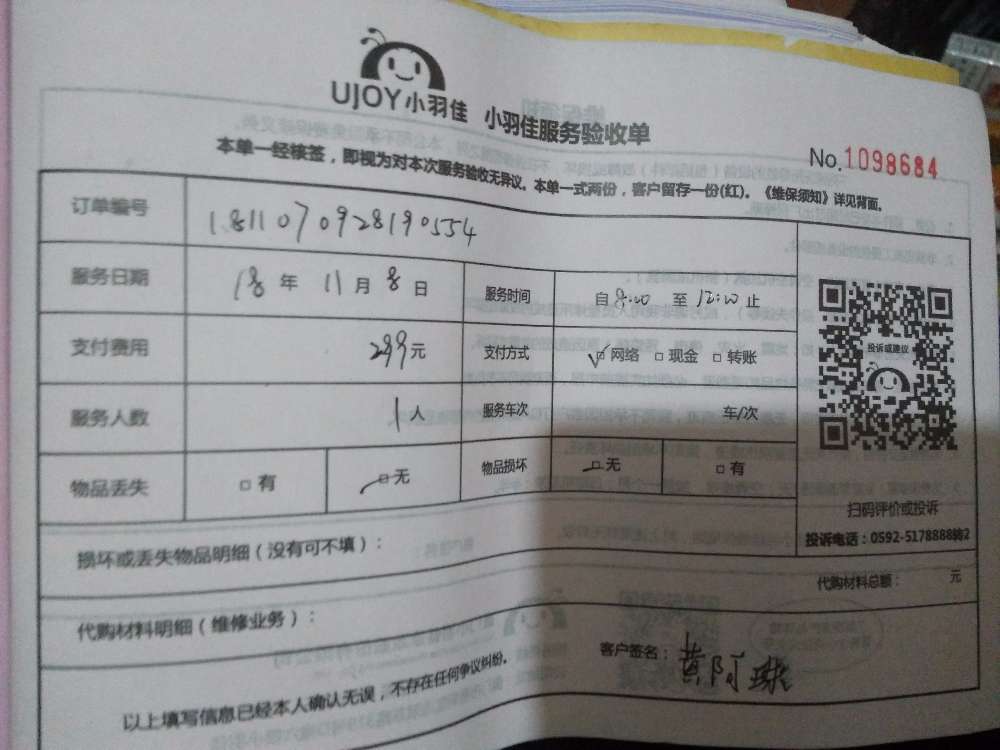 UJOY小羽佳 小羽佳服务验收单
No.1098684
本单一经核签，即视为对本次服务验收无异议。本单一式两份，客户留存一份(红)。《维保须知》详见背面。
订单编号 1811070928190554
服务日期 18年 11月 8日 服务时间 自8:00 至12:00止
支付费用 299元 支付方式 ☑网络 □现金 □转账
投诉或建议
服务人数 1人 服务车次 车/次
物品丢失 □有 ☑无 物品损坏 ☑无 □有
扫码评价或投诉
投诉电话：0592-5178888转2
损坏或丢失物品明细（没有可不填）：
代购材料总额： 元
代购材料明细（维修业务）：
客户签名：黄阿
以上填写信息已经本人确认无误，不存在任何争议纠纷。